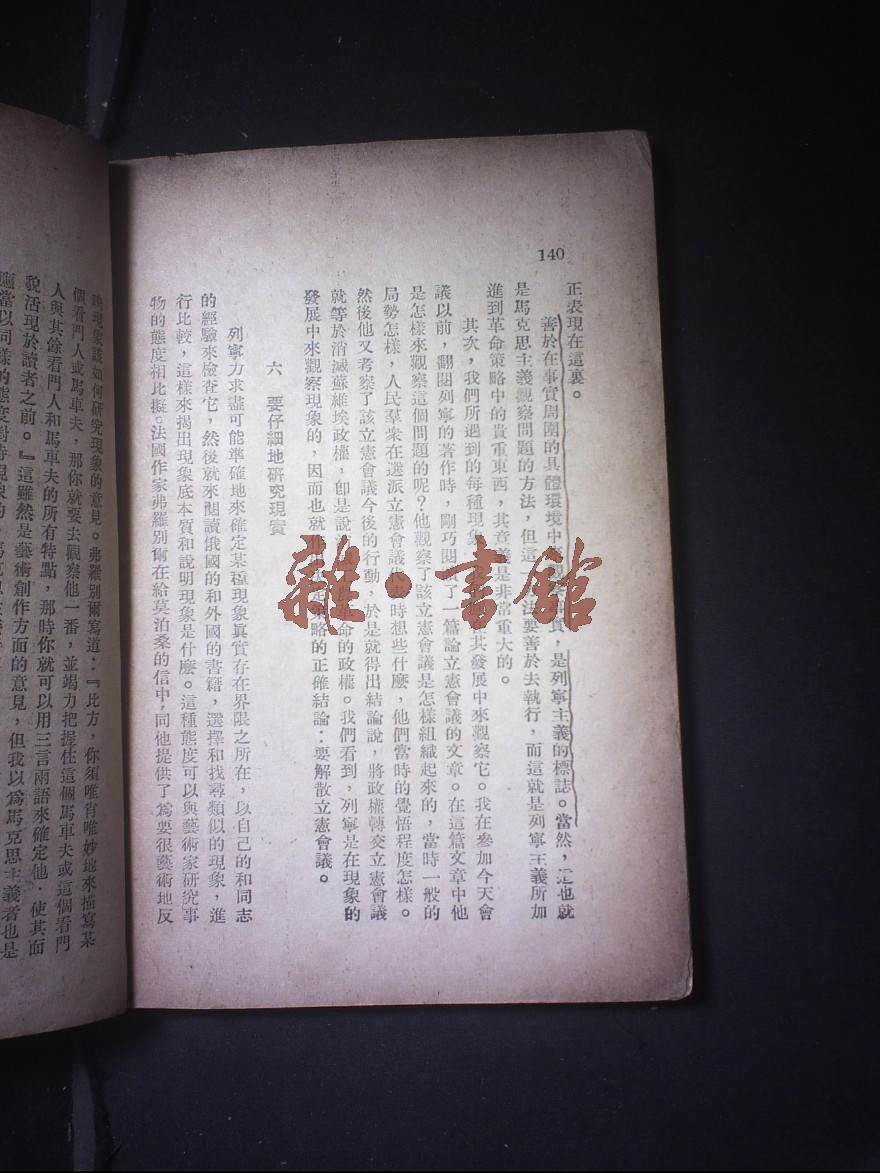 140
正表現在這裏。
善於在事實周圍的具體環境中，是列寧主義的標誌。當然，這也就
是馬克思主義觀察問題的方法，但這法要善於去執行，而這就是列寧主義所加
進到革命策略中的貴重東西，其意義是非常重大的。
其次，我們所遇到的每種現象其發展中來觀察它。我在參加今天會
議以前，翻閱列寧的著作時，剛巧閱了一篇論立憲會議的文章。在這篇文章中他
是怎樣來觀察這個問題的呢？他觀察了該立憲會議是怎樣組織起來的，當時一般的
局勢怎樣，人民羣衆在選派立憲會議代表時想些什麼，他們當時的覺悟程度怎樣。
然後他又考察了該立憲會議今後的行動，於是就得出結論說，將政權轉交立憲會議
就等於消滅蘇維埃政權，卽是說革命的政權。我們看到，列寧是在現象的
發展中來觀察現象的，因而也就作策略的正確結論：要解散立憲會議。
六　要仔細地研究現實
列寧力求盡可能準確地來確定某種現象眞實存在界限之所在，以自己的和同志
的經驗來檢查它，然後就來閱讀俄國的和外國的書籍，選擇和找尋類似的現象，進
行比較，這樣來揭出現象底本質和說明現象是什麼。這種態度可以與藝術家研究事
物的態度相比擬。法國作家弗羅別爾在給莫泊桑的信中，同他提供了爲要很藝術地反
映現象該如何研究現象的意見。弗羅別爾寫道：『比方，你須唯肖唯妙地來描寫某
個看門人或馬車夫，那你就要去觀察他一番，並竭力把握住這個馬車夫或這個看門
人與其餘看門人和馬車夫的所有特點，那時你就可以用三言兩語來確定他　使其面
貌活現於讀者之前。』這雖然是藝術創作方面的意見，但我以爲馬克思主義者也是
應當以同樣的態度對待現象的
雜·書館